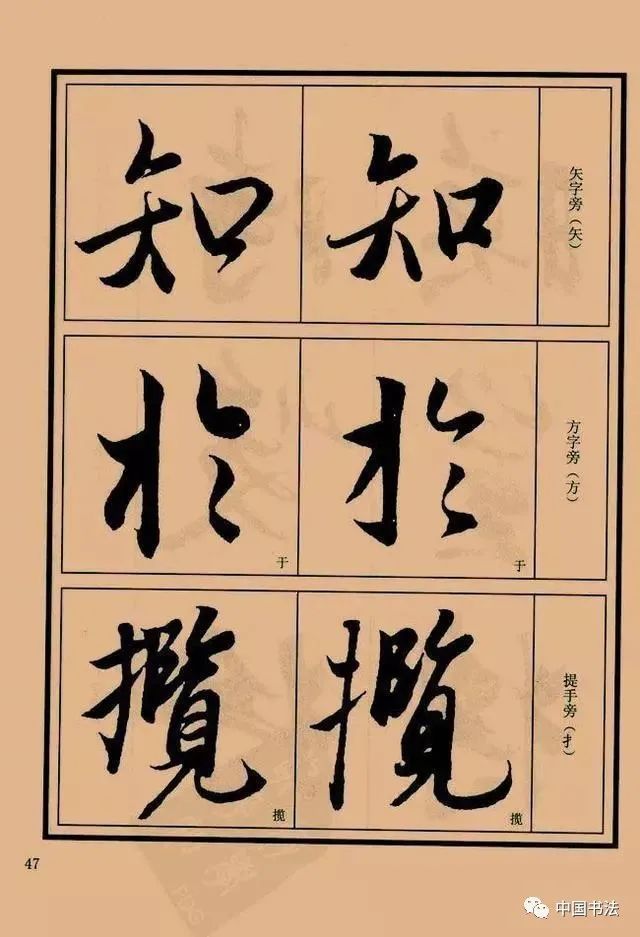 矢字旁（矢）
知
知
方字旁（方）
於
于
於
于
提手旁（扌）
攬
揽
攬
揽
47
中国书法